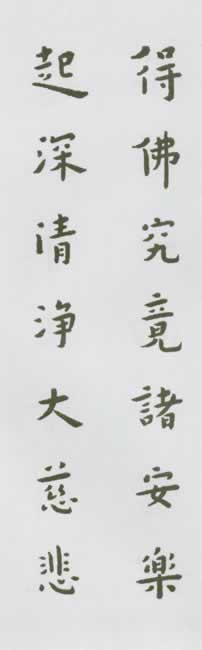 得佛究竟諸安樂
起深清淨大慈悲